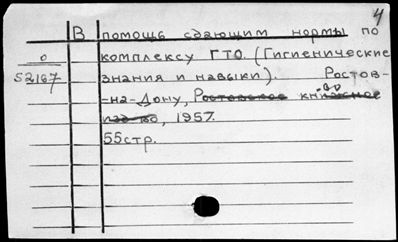 4
В помощь сдающим нормы по
о комплексу ГТО. (Гигиенические
52167 знания и навыки). Ростов-
-на-Дону, Ростовское книжное
изд-во, 1957.
55стр.